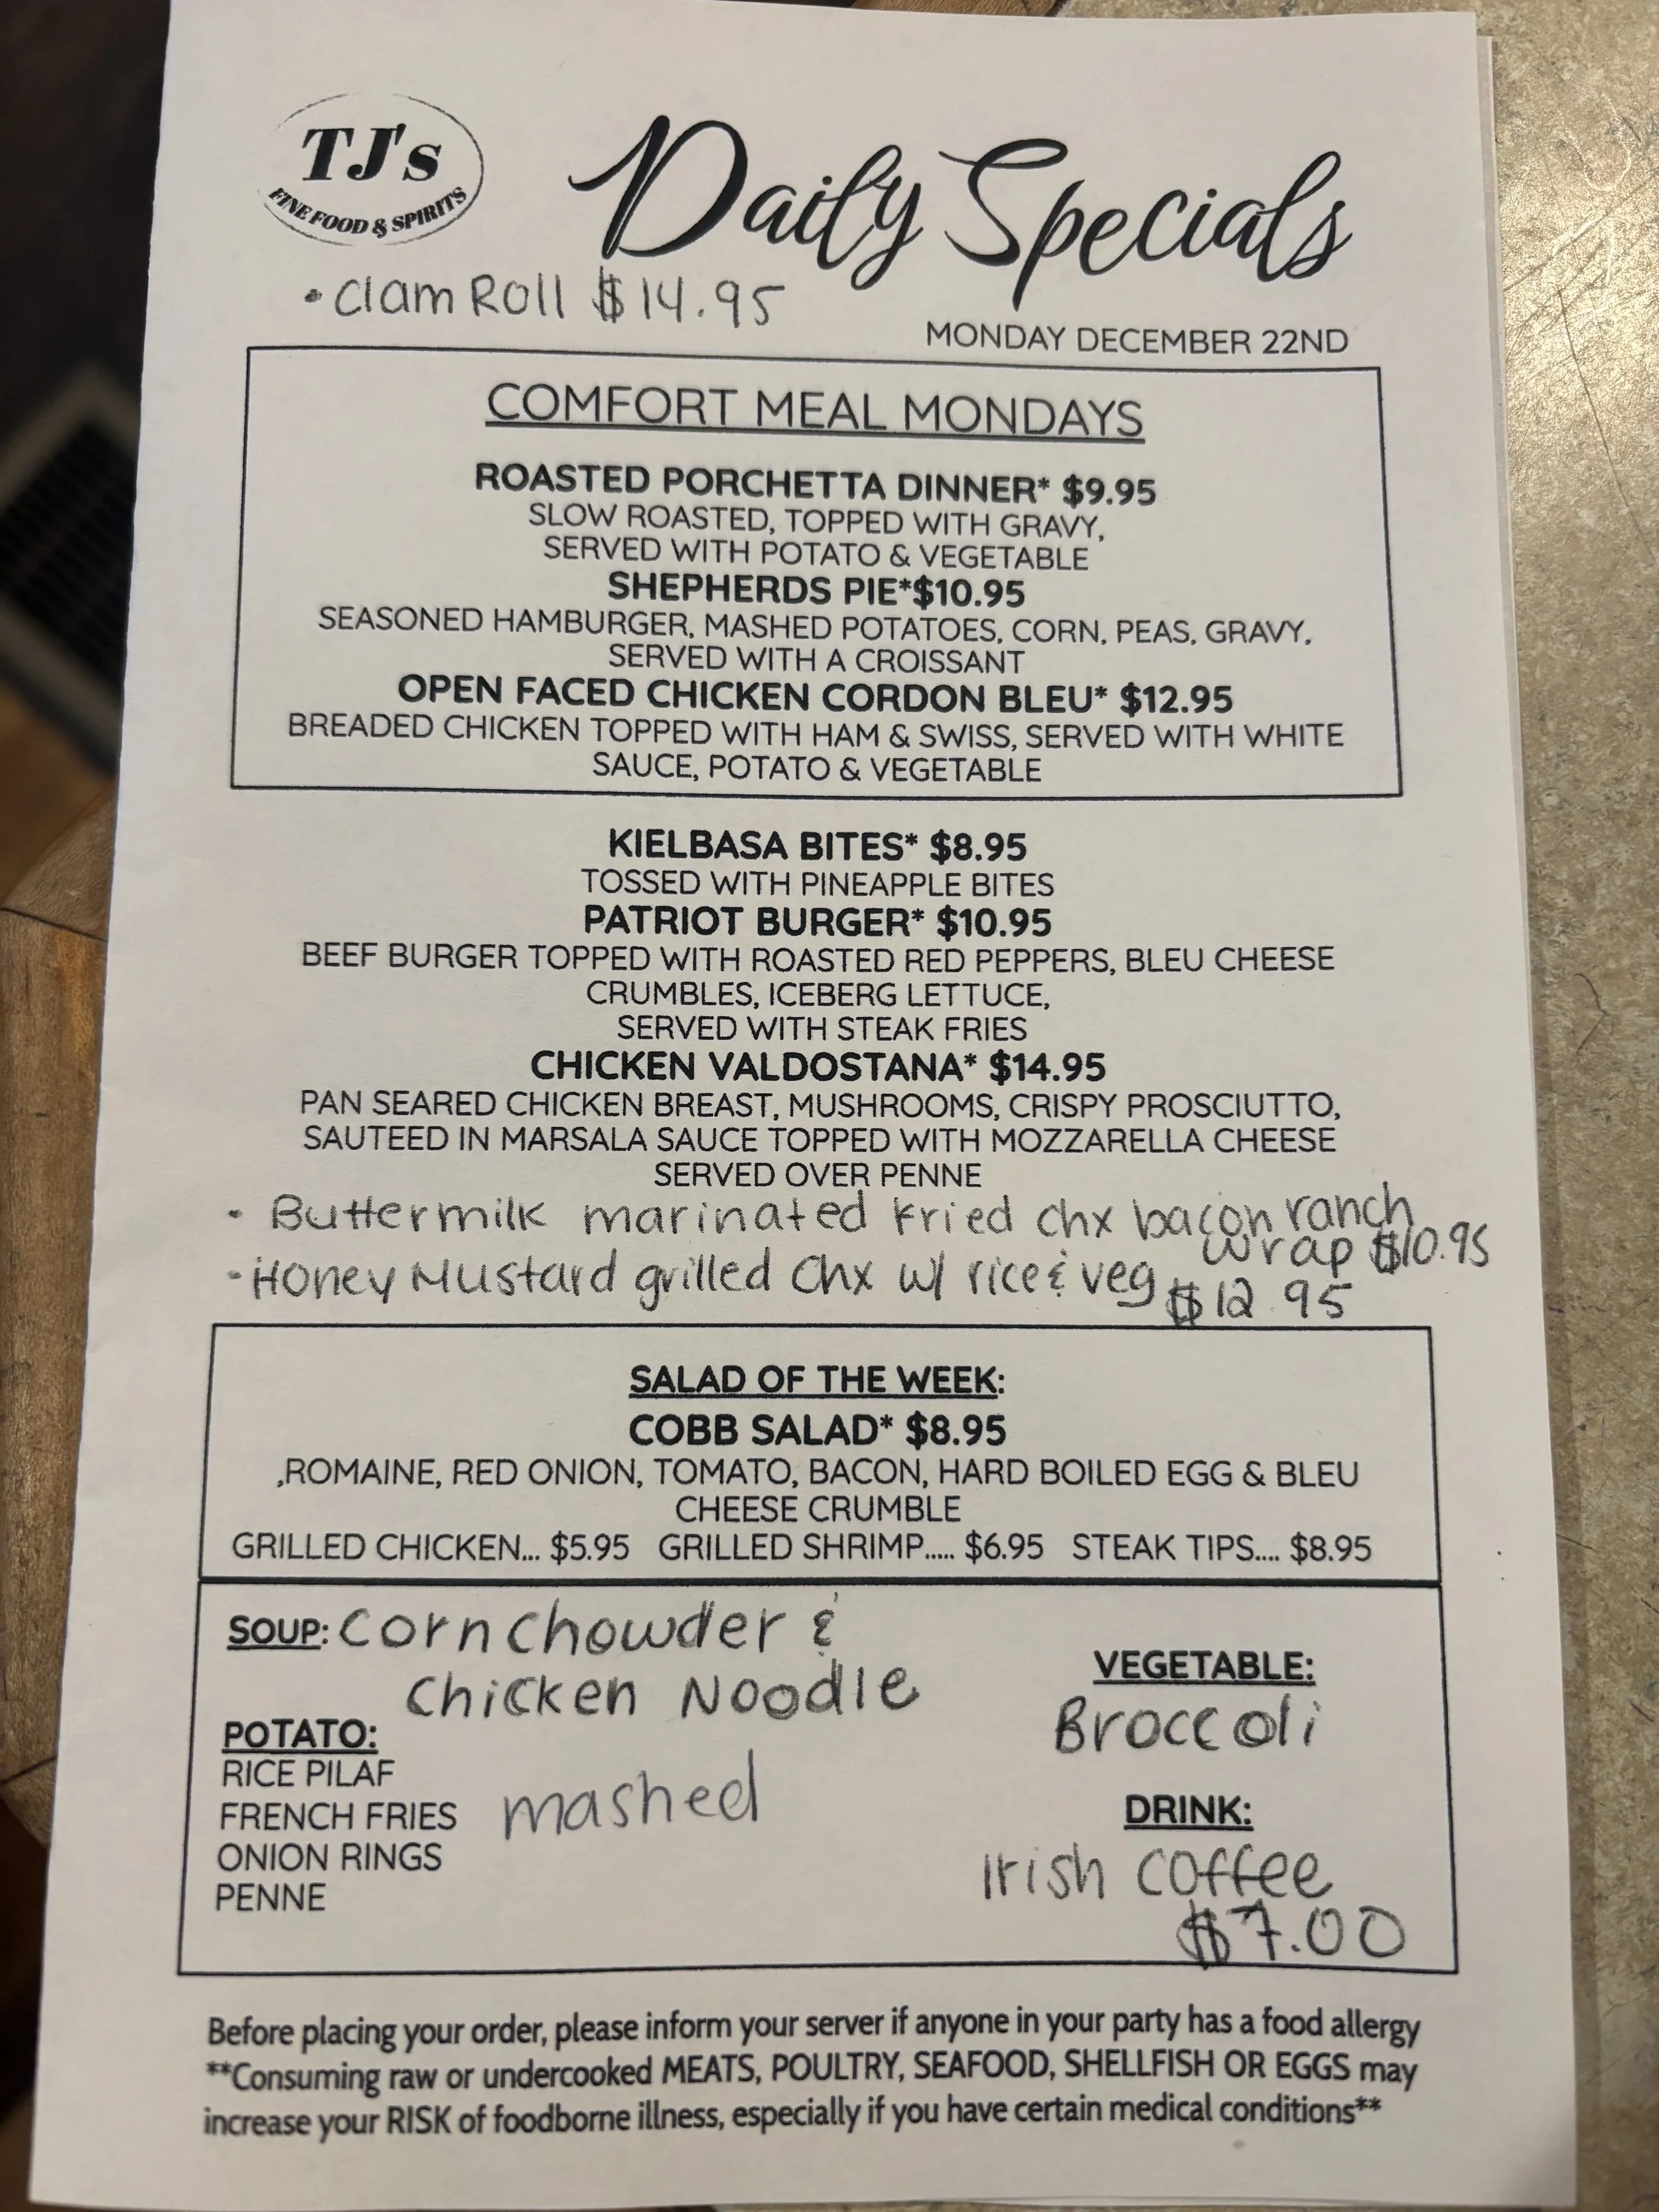 TJ's
FINE FOOD & SPIRITS
Daily Specials
• Clam Roll $14.95
MONDAY DECEMBER 22ND
COMFORT MEAL MONDAYS
ROASTED PORCHETTA DINNER* $9.95
SLOW ROASTED, TOPPED WITH GRAVY,
SERVED WITH POTATO & VEGETABLE
SHEPHERDS PIE*$10.95
SEASONED HAMBURGER, MASHED POTATOES, CORN, PEAS, GRAVY,
SERVED WITH A CROISSANT
OPEN FACED CHICKEN CORDON BLEU* $12.95
BREADED CHICKEN TOPPED WITH HAM & SWISS, SERVED WITH WHITE
SAUCE, POTATO & VEGETABLE
KIELBASA BITES* $8.95
TOSSED WITH PINEAPPLE BITES
PATRIOT BURGER* $10.95
BEEF BURGER TOPPED WITH ROASTED RED PEPPERS, BLEU CHEESE
CRUMBLES, ICEBERG LETTUCE,
SERVED WITH STEAK FRIES
CHICKEN VALDOSTANA* $14.95
PAN SEARED CHICKEN BREAST, MUSHROOMS, CRISPY PROSCIUTTO,
SAUTEED IN MARSALA SAUCE TOPPED WITH MOZZARELLA CHEESE
SERVED OVER PENNE
• Buttermilk marinated fried chx bacon ranch
wrap $10.95
• Honey Mustard grilled Chx w/ rice & veg
$12.95
SALAD OF THE WEEK:
COBB SALAD* $8.95
,ROMAINE, RED ONION, TOMATO, BACON, HARD BOILED EGG & BLEU
CHEESE CRUMBLE
GRILLED CHICKEN... $5.95 GRILLED SHRIMP..... $6.95 STEAK TIPS.... $8.95
SOUP: Corn chowder &
Chicken Noodle
POTATO:
RICE PILAF
FRENCH FRIES
ONION RINGS
PENNE
mashed
VEGETABLE:
Broccoli
DRINK:
Irish coffee
$7.00
Before placing your order, please inform your server if anyone in your party has a food allergy
**Consuming raw or undercooked MEATS, POULTRY, SEAFOOD, SHELLFISH OR EGGS may
increase your RISK of foodborne illness, especially if you have certain medical conditions**